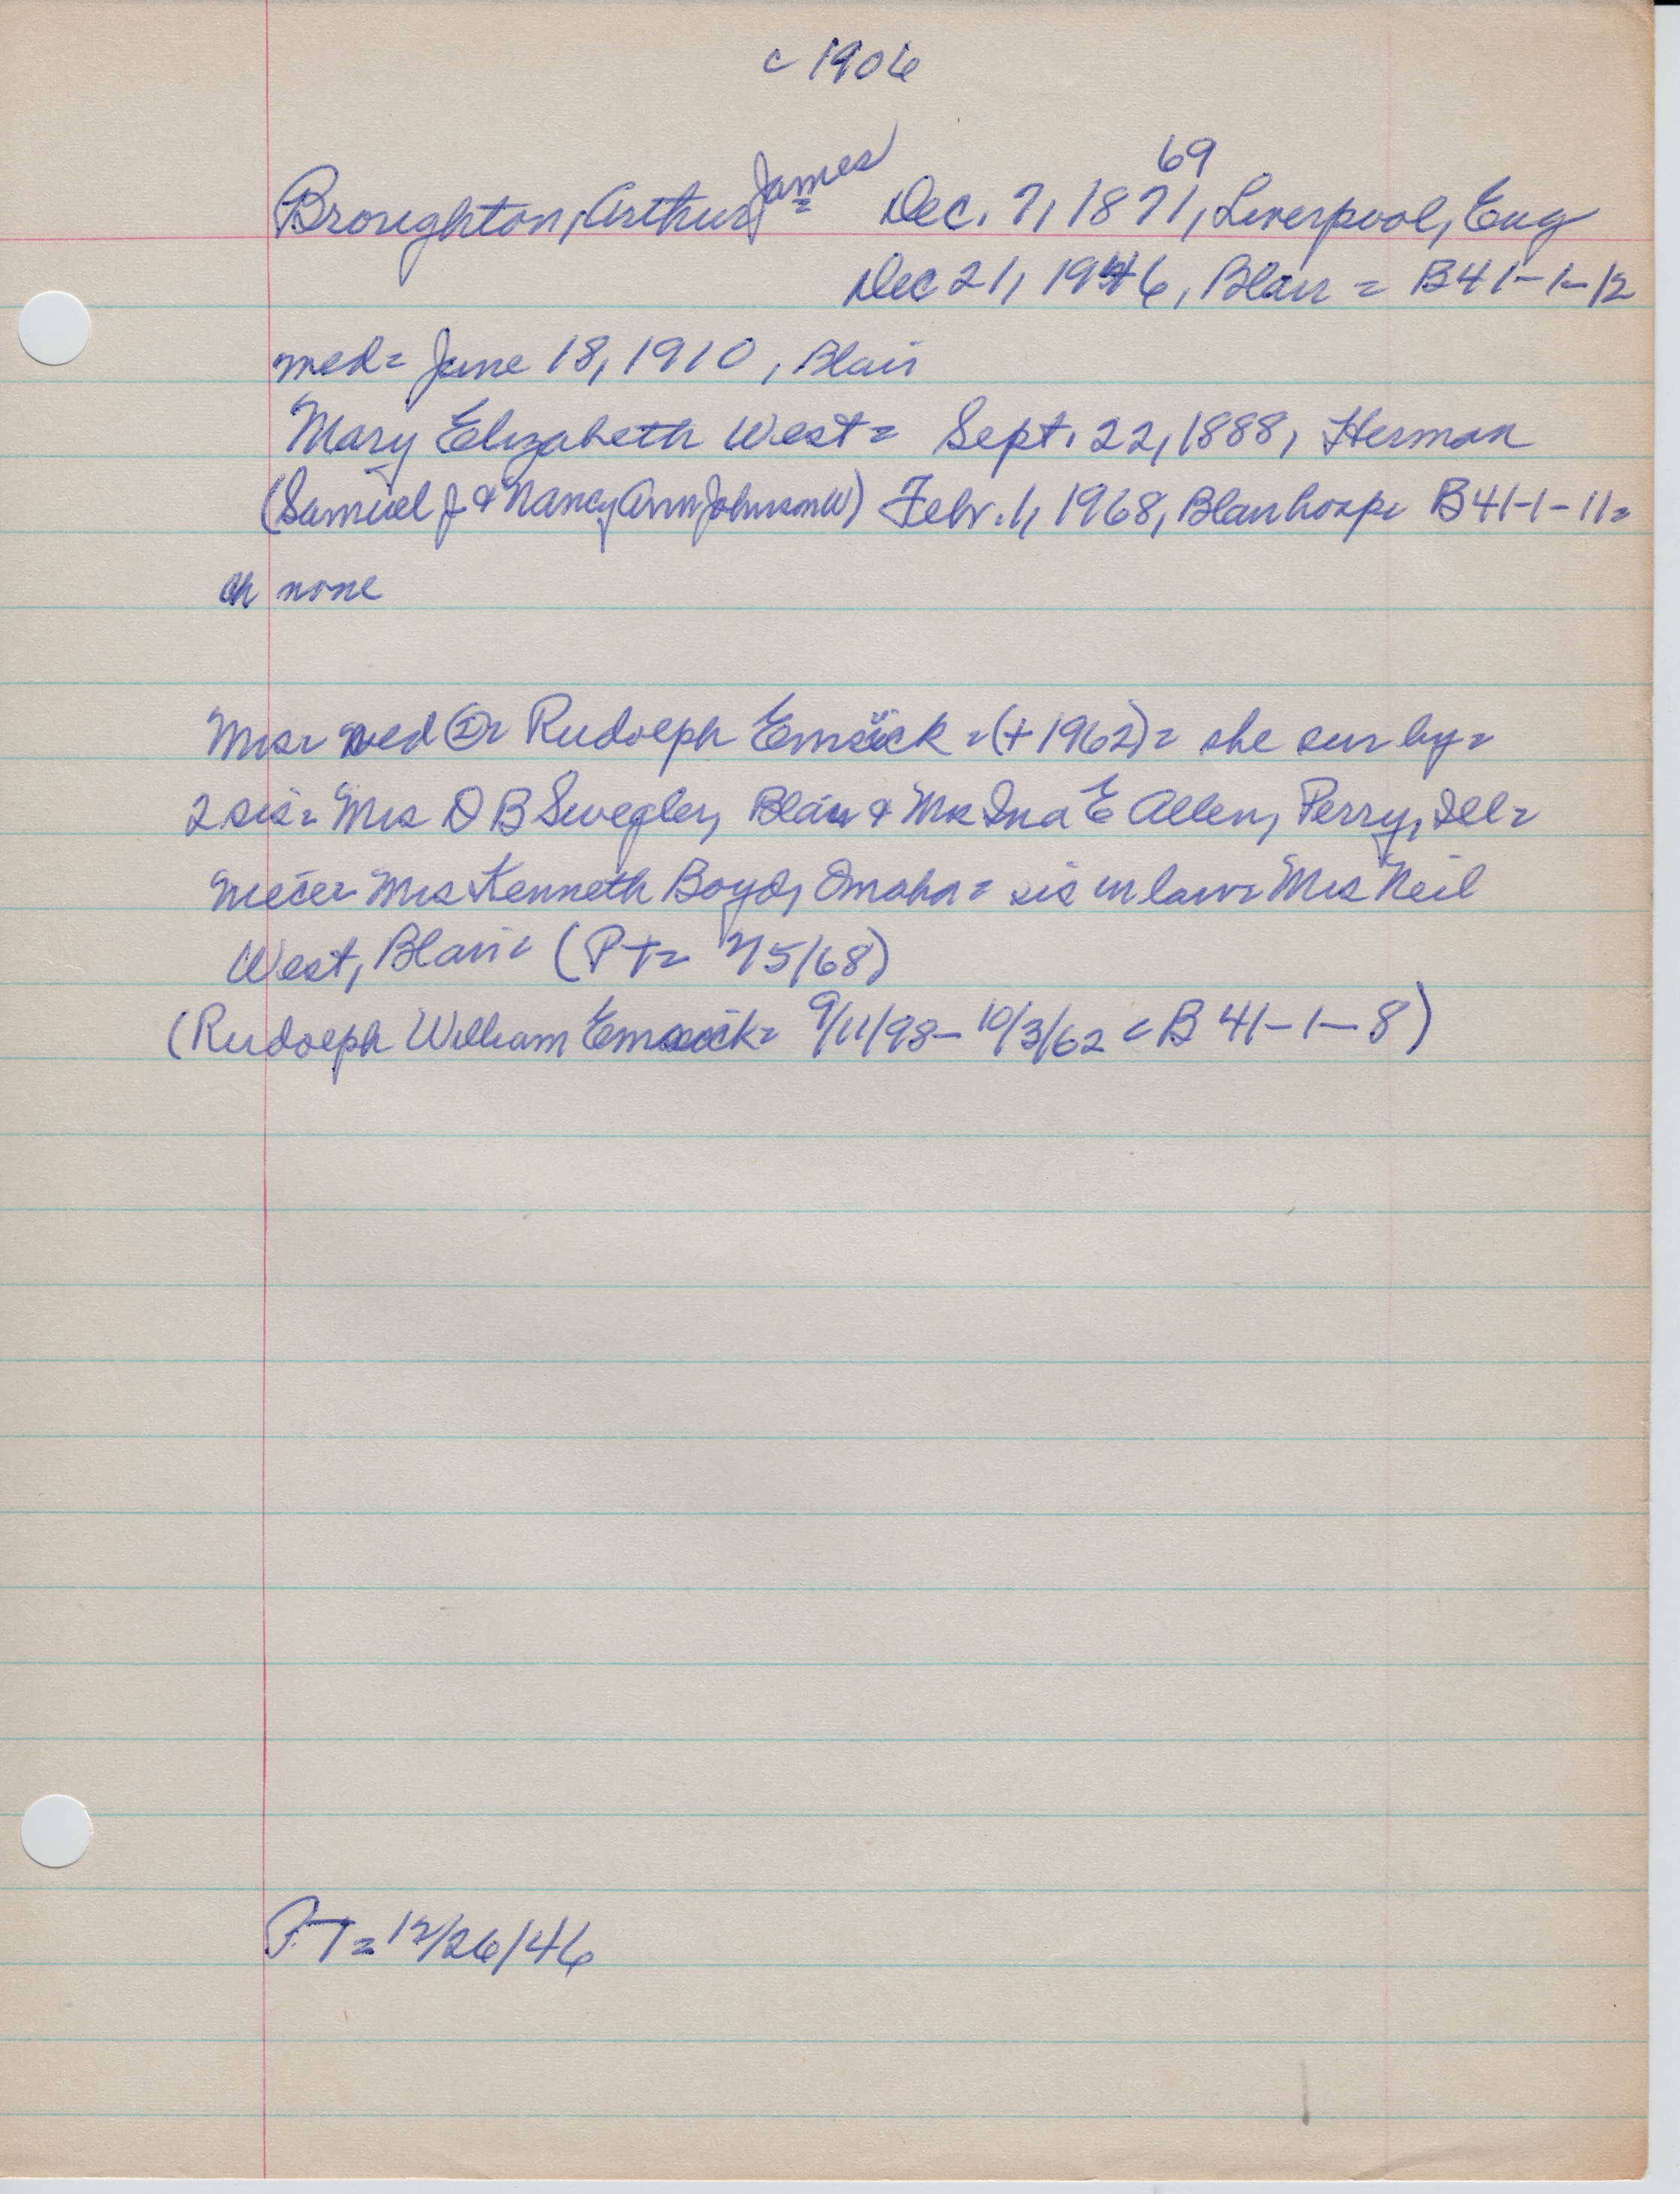 c 1906
69
Broughton, Arthur James = Dec. 7, 1871, Liverpool, Eng
Dec 21, 1946, Blair = B41-1-12
med = June 18, 1910, Blair
Mary Elizabeth West = Sept. 22, 1888, Herman
(Samuel J & Nancy Ann Johnson W) Febr. 1, 1968, Blair hosp = B41-1-11 =
ch none
Mrs = med 2 = Rudolph Emsick = (+ 1962) = she sur by =
2 sis = Mrs O B Swegler, Blair & Mrs Ina E Allen, Perry, Ill =
niece = Mrs Kenneth Boyd, Omaha = sis in law = Mrs Neil
West, Blair = (PT = 2/5/68)
(Rudolph William Emsick = 9/11/98 - 10/3/62 = B 41-1-8)
PT = 12/26/46